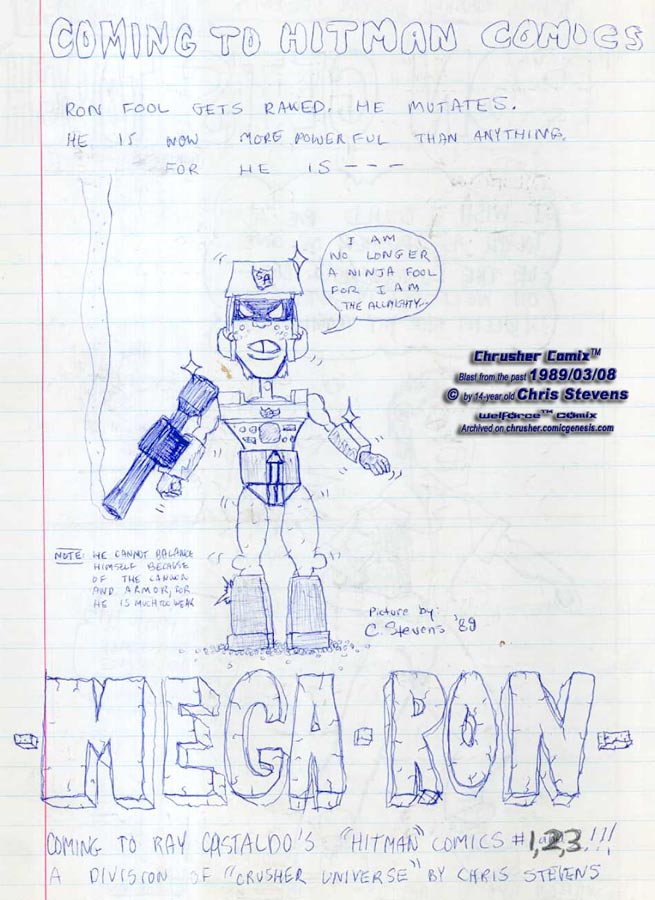 COMING TO HITMAN COMICS
RON FOOL GETS RAKED. HE MUTATES.
HE IS NOW MORE POWERFUL THAN ANYTHING.
FOR HE IS ---
I AM
NO LONGER
A NINJA FOOL
FOR I AM
THE ALLMIGHTY...
Chrusher Comix™
Blast from the past 1989/03/08
© by 14-year old Chris Stevens
Welforce™ Comix
Archived on chrusher.comicgenesis.com
NOTE: HE CANNOT BALANCE
HIMSELF BECAUSE
OF THE CANNON
AND ARMOR, FOR
HE IS MUCH TOO WEAK
Picture by:
C. Stevens '89
-MEGA-RON-
COMING TO RAY CASTALDO'S "HITMAN" COMICS #1,2,3!!!
A DIVISION OF "CRUSHER UNIVERSE" BY CHRIS STEVENS